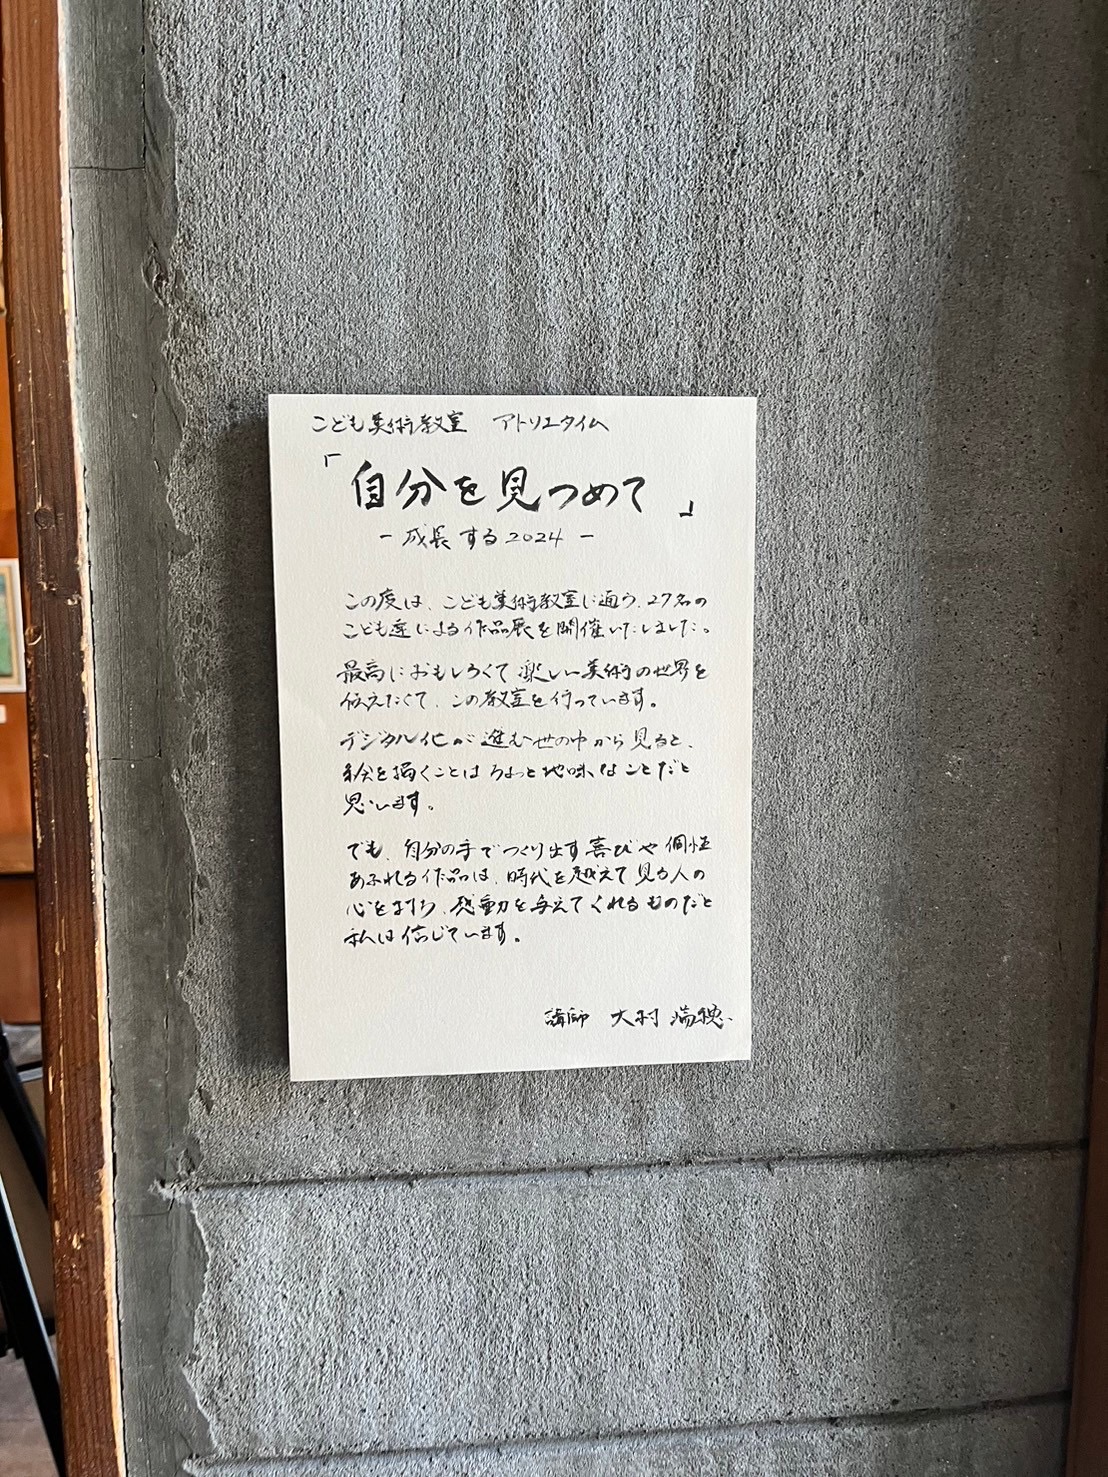 こども美術教室 アトリエタイム
「自分を見つめて」
－成長する2024－
この度は、こども美術教室に通う、27名の
こども達による作品展を開催いたしました。
最高におもしろくて楽しい美術の世界を
伝えたくて、この教室を行っています。
デジタル化が進む世の中から見ると、
絵を描くことはちょっと地味なことだと
思います。
でも、自分の手でつくり出す喜びや個性
あふれる作品は、時代を越えて見る人の
心をまもり、感動を与えてくれるものだと
私は信じています。
講師 大村 満穂